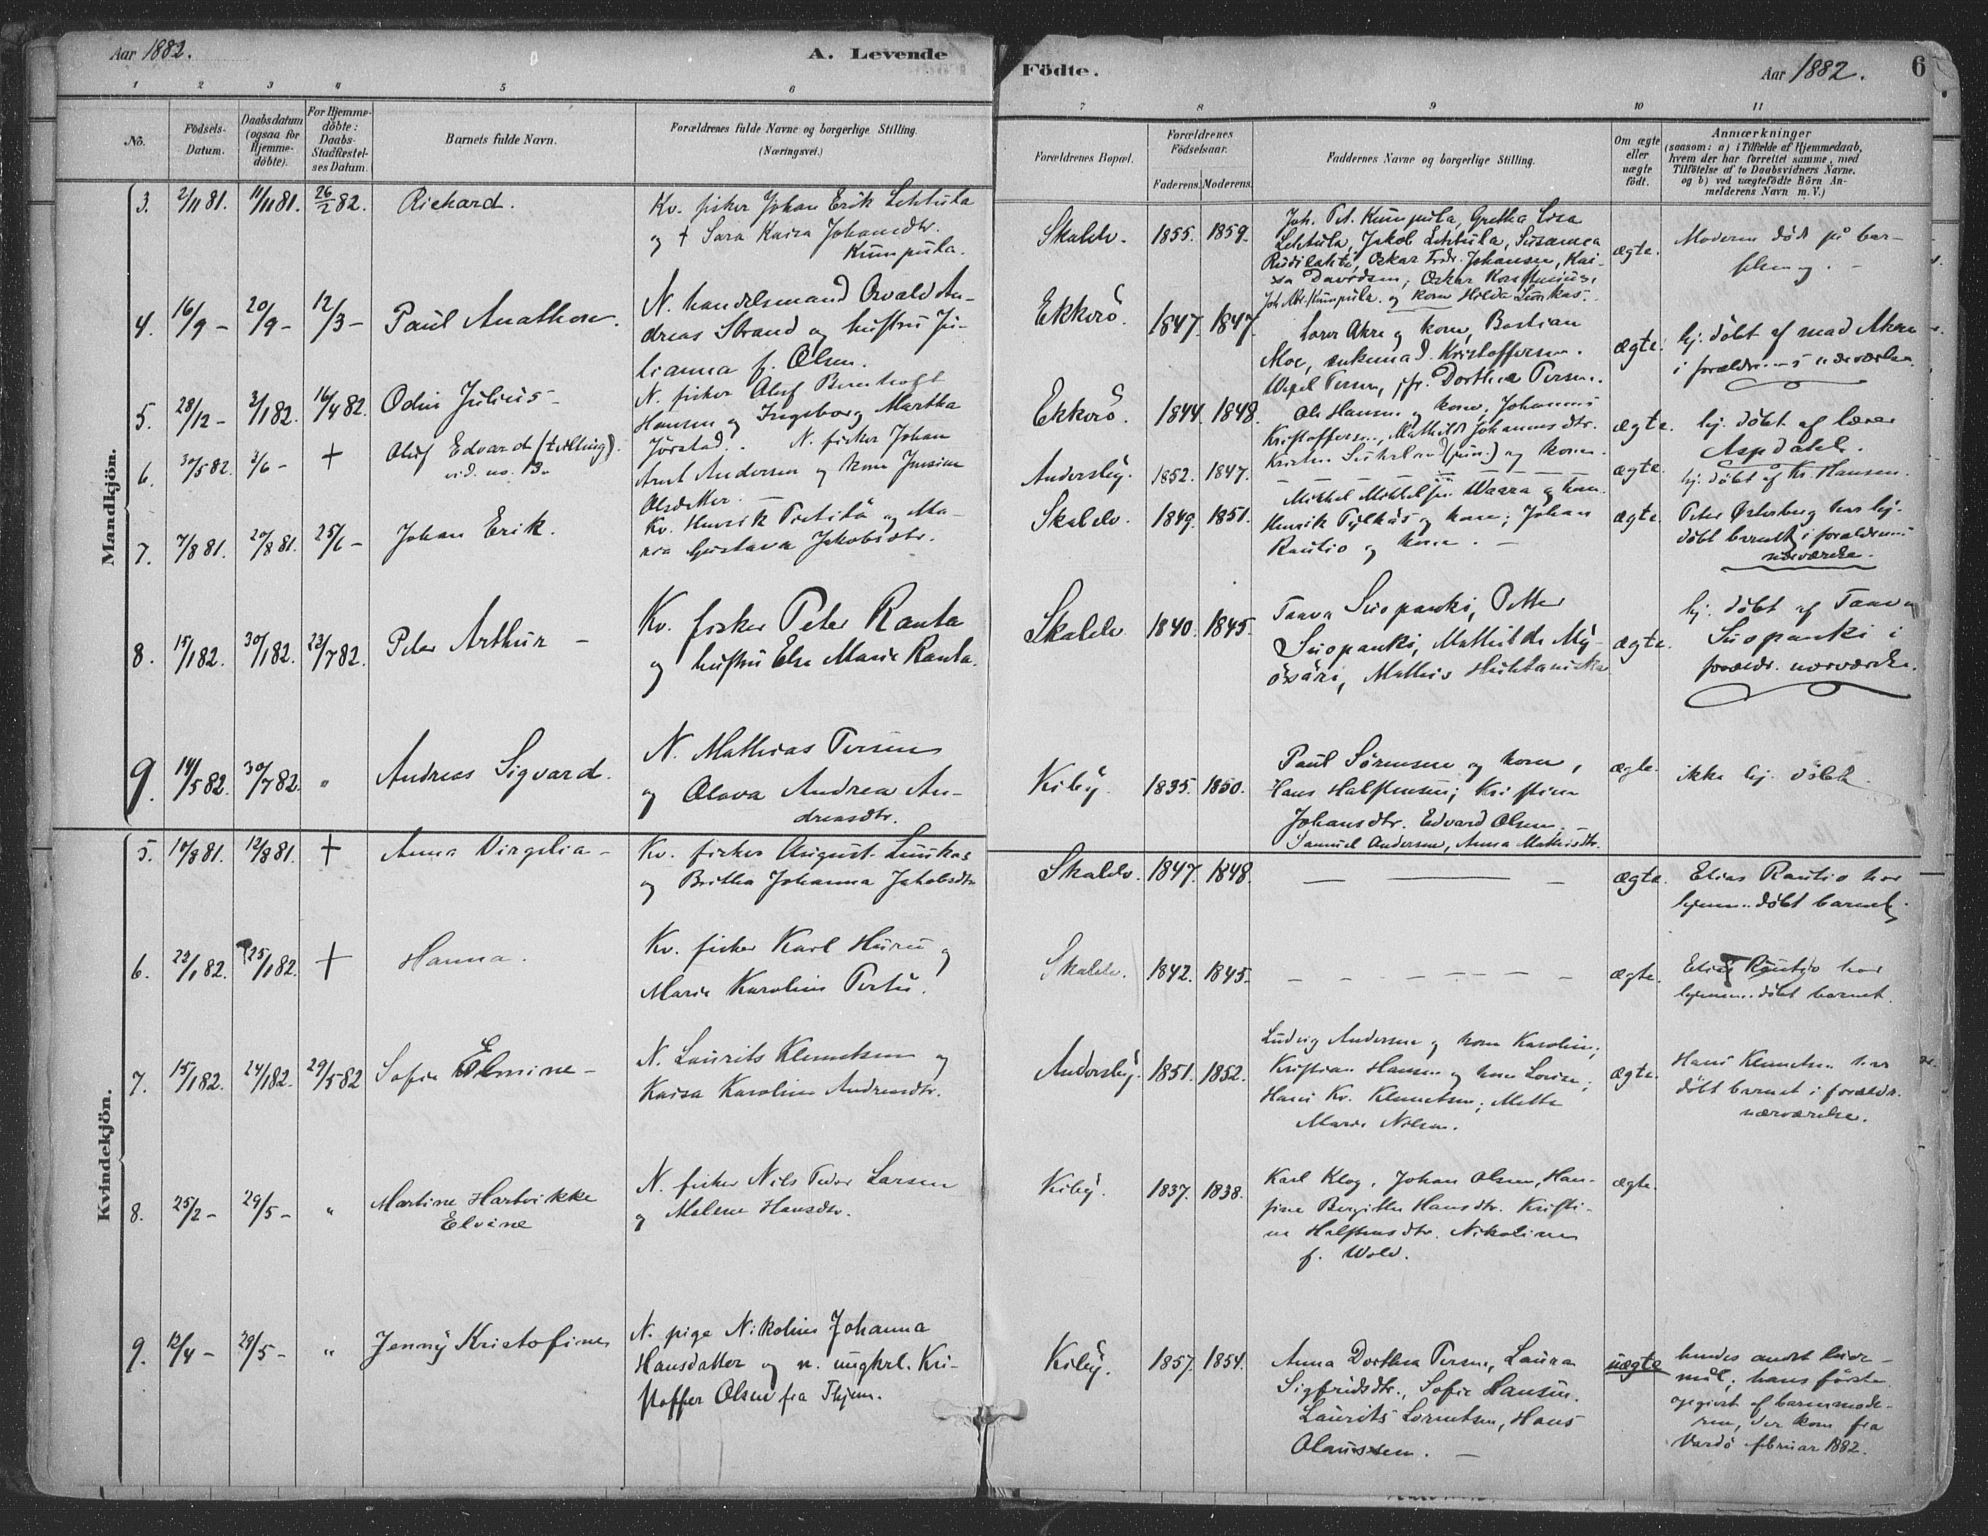 Aar 1882.
A. Levende
Födte.
Aar 1882.
6
1 2 3 4 5 6 7 8 9 10 11
No.
Födsels-
Datum.
Daabsdatum
(ogsaa for
Hjemme-
döbte).
For Hjemme-
döbte:
Daabs-
Stadfæstel-
ses Datum.
Barnets fulde Navn.
Forældrenes fulde Navne og borgerlige Stilling.
(Næringsvei.)
Forældrenes Bopæl.
Forældrenes
Födselsaar.
Faderens. Moderens.
Faddernes Navne og borgerlige Stilling.
Om ægte
eller
uægte
födt.
Anmærkninger
(saasom: a) i Tilfælde af Hjemmedaab,
hvem der har forrettet samme, med
Tilföielse af to Daabsvidners Navne,
og b) ved uægtefödte Börn An-
melderens Navn m. V.)
Mandkjön.
3. 2/11 81. 11/11 81. 26/2 82.
Richard.
Kv. fisker Johan Erik Lehtula
og + Sara Kaisa Johansdtr.
Kumpula.
Skalelv. 1855. 1859.
Joh. Pet. Kumpula, Gretha Lisa
Lehtula, Jakob Lehtula, Susanna
Oskar Fredr. Johansen, Kai-
sa Davidsen, Oskar
Joh. Abr. Kumpula og kone Hilda
ægte.
Moderen död på bar-
selseng. -
4. 16/9 - 20/9 - 12/3 -
Paul Anathon.
N. handelsmand Osvald An-
dreas Strand og hustru Ju-
lianna f. Olsen.
Ekkerö. 1847. 1847.
Lærer Akre og kone, Bastian
Moe, enkemad. Kristoffersen.
Persen, jfr. Dorthea Persen.
ægte.
hj. döbt af mad Akre
i forældrenes nærværelse.
5. 28/12 - 2/1 82. 16/4 82.
Odin Julius -
N. fisker Oluf Bernhoft
Hansen og Ingeborg Martha
Jörstad.
Ekkerö. 1844. 1848.
Ole Hansen og kone, Johannes
Kristoffersen, Mathilde Johannesdtr.
ægte.
hj. döbt af lærer
Aspdahl.
6. 30/5 82. 3/6 - +
Oluf Edvard (tvilling).
vid. no. 13.
N. fisker Johan
Arnt Andersen og kone Jensine
Olsdatter.
Andersby. 1852. 1847.
Kristen (jun.) og kone.
ægte.
hj. döbt af Kr. Hansen.
7. 7/8 81. 20/8 81. 25/6 -
Johan Erik.
Kv. Henrik Pietilä og Ma-
ria Gustava Jakobsdtr.
Skalelv. 1849. 1851.
Mikkel Mikkelsen Waara og kone
Henrik Pylkäs og kone; Johan
Rautio og kone. -
ægte.
Peter Österberg har hj.
döbt barnet i forældrenes
nærværelse.
8. 15/1 82. 30/1 82. 23/7 82.
Peter Arthur -
Kv. fisker Peter Ranta
og hustru Else Marie Ranta.
Skalelv 1840. 1845.
Taava Suopanki, Petter
Suopanki, Mathilde My-
ösäri, Mathis Huhtaniska
ægte.
hj. döbt af Taava
Suopanki i
forældr. nærværelse.
9. 14/5 82. 30/7 82. "
Andreas Sigvard.
N. Mathias Persen
og Olava Andrea An-
dreasdtr.
Kiby. 1835. 1850.
Paul Sörensen og kone,
Hans Halftensen; Kristine
Johansdtr. Edvard Olsen.
Samuel Andersen, Anna Mathisdtr.
ægte.
ikke hj. döbt.
Kvindekjön.
5. 10/8 81. 12/8 81. +
Anna Virgelia -
Kv. fisker August Luukas
og Britha Johanna Jakobsdtr.
Skalelv. 1847. 1848.
- - -
ægte.
Elias Rautio har
hjemmedöbt barnet.
6. 23/1 82. 25/1 82. +
Hanna.
Kv. fisker Karl Huru og
Maria Karolina Pertu.
Skalelv. 1842. 1845.
- - - - - - -
ægte.
Elias Rautio har
hjemmedöbt barnet.
7. 15/1 82. 24/1 82. 29/5 82
Sofie Elmine -
N. Laurits Klemetsen og
Kaisa Karoline Andreasdtr.
Andersby. 1851. 1852.
Ludvig Andersen og kone Karoline;
Kristian Hansen og kone Lovise;
Hans Kr. Klemetsen; Mette
Marie Nilsen.
ægte.
Hans Klemetsen har
döbt barnet i forældr.
nærværelse.
8. 25/2 - 29/5 - "
Martine Hartvikke
Elvine
N. fisker Nils Peder Larsen
og Malene Hansdtr.
Kiby. 1837. 1838.
Karl Klog, Johan Olsen, Han-
sine Bergitte Hansdtr. Kristi-
ne Halftensdtr. Nikoline
f. Wold.
ægte.
9. 12/4 - 29/5 - "
Jenny Kristofine
N. pige Nikoline Johanna
Hansdatter og n. ungkrl. Kri-
stoffer Olsen fra Thjem.
Kiby. 1857. 1854.
Anna Dorthea Persen, Laura
Sigfridsdtr., Sofie Hansen.
Laurits Lorentsen, Hans
Olaussen. -
uægte
hendes andet leier-
mål; hans förste
opgivet af barnemode-
ren, der kom fra
Vardö februar 1882.